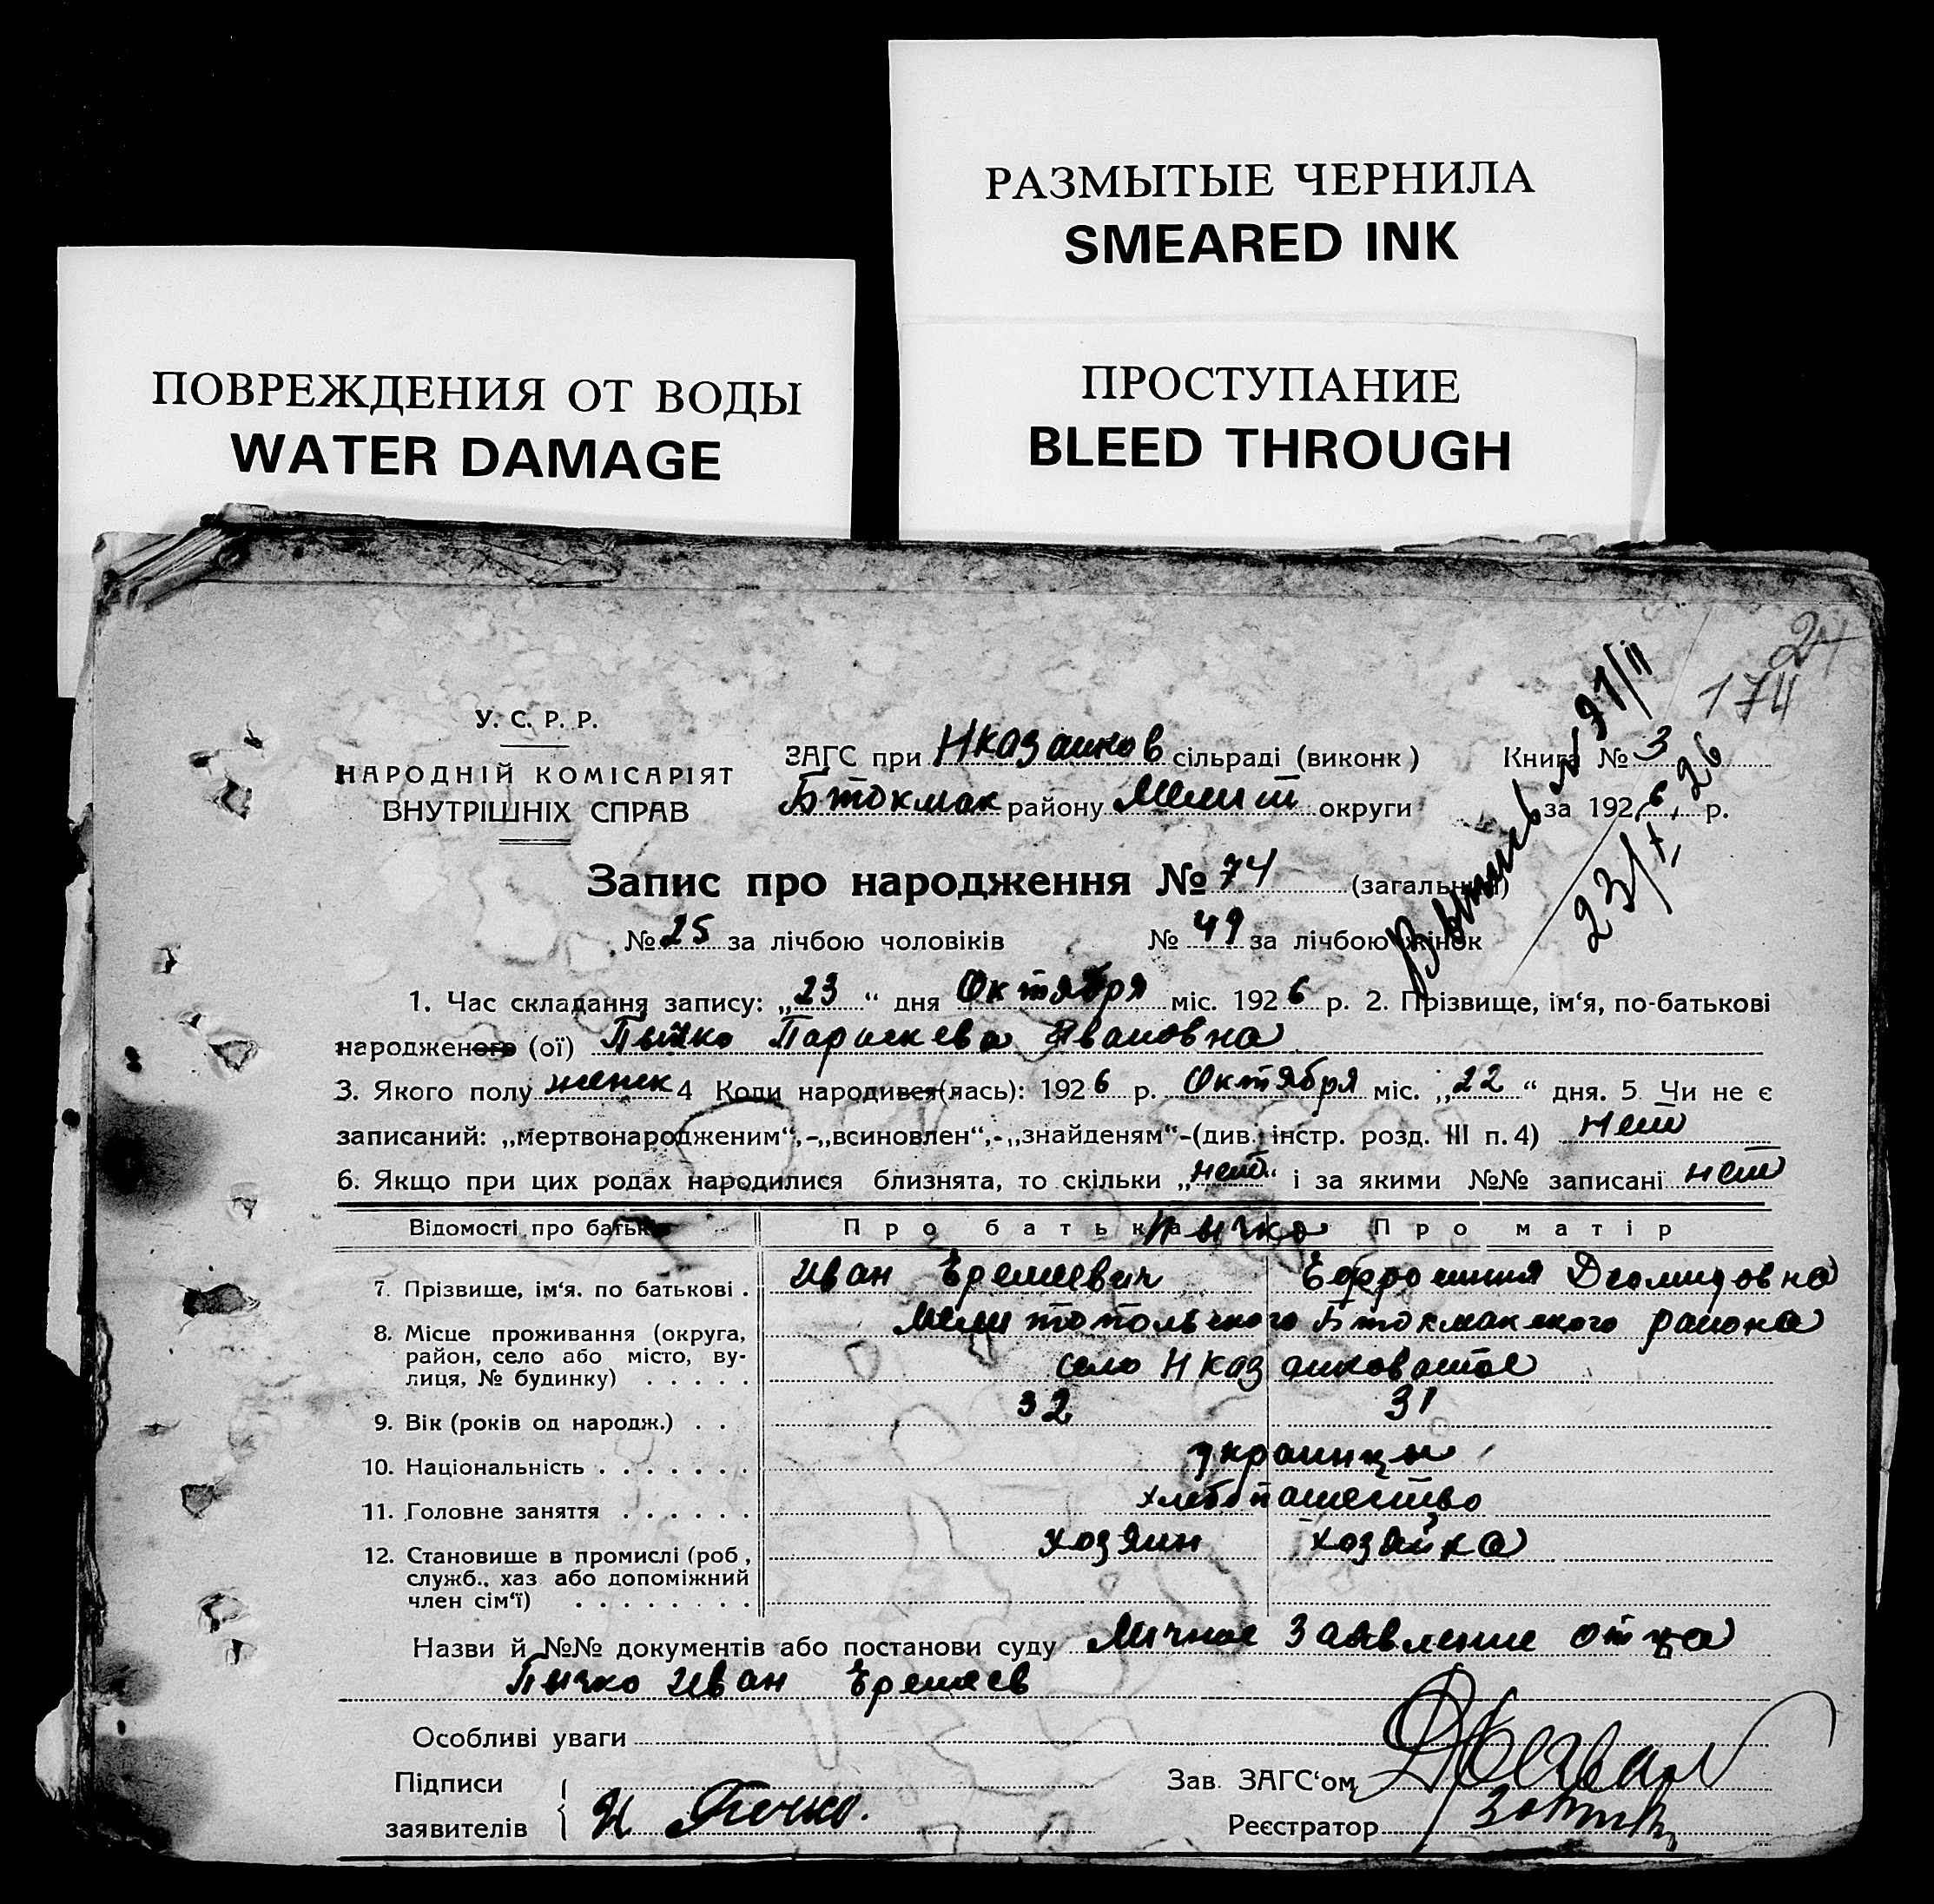 РАЗМЫТЫЕ ЧЕРНИЛА
SMEARED INK
ПОВРЕЖДЕНИЯ ОТ ВОДЫ
WATER DAMAGE
ПРОСТУПАНИЕ
BLEED THROUGH
24
174
У. С. Р. Р.
НАРОДНІЙ КОМІСАРІЯТ
ВНУТРІШНІХ СПРАВ
ЗАГС при Нказанков сільраді (виконк) Книга № 3
Бтокмак району Мелит округи за 1926 р.
23/X 26
Запис про народження № 74 (загальний)
№ 25 за лічбою чоловіків № 49 за лічбою жінок
1. Час складання запису: „23“ дня Октября міс. 1926 р. 2. Прізвище, ім‘я, по-батькові
народженого (ої) Пычко Параскева Ивановна
3. Якого полу женск 4 Коли народився(лась): 1926 р. Октября міс. „22“ дня. 5 Чи не є
записаний: „мертвонародженим“,-„всиновлен“,-„знайденям“-(див. інстр. розд. III п. 4) нет
6. Якщо при цих родах народилися близнята, то скільки „нет“ і за якими №№ записані нет
Відомості про батьків Про батька Пычко Про матір
7. Прізвище, ім‘я. по батькові . Иван Еремеевич Ефросиния Диомидовна
8. Місце проживання (округа, Мелитопольского Бтокмакского района
район, село або місто, ву- село Нказанковатое
лиця, № будинку) . . . . .
9. Вік (років од народж.) . . 32 31
10. Національність . . . . . . . украинцы
11. Головне заняття . . . . . . хлебопашество
12. Становище в промислі (роб, хозяин хозяйка
служб., хаз або допоміжний
член сім‘ї) . . . . . . . .
Назви й №№ документів або постанови суду Личное Заявление отца
Пычко Иван Еремеев
Особливі уваги
Підписи Зав. ЗАГС‘ом
заявителів И Печко. Реєстратор